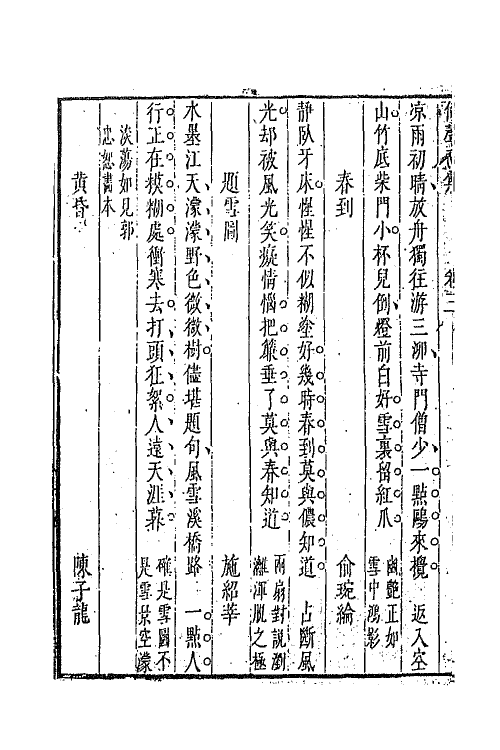 涼雨初晴放舟獨往游三泖寺門僧少一點鷗來攪　返入空
山竹底柴門小杯兒倒燈前自好雪裏留紅爪
幽艷正如
雪中鴻影
春到　俞琬綸
靜臥牙床惺惺不似糊塗好幾時春到莫與儂知道　占斷風
光却被風光笑癡情惱把簾垂了莫與春知道
兩扇對說瀏
灕渾脫之極
題雪圖　施紹莘
水墨江天濛濛野色微微樹儘堪題句風雪溪橋路　一點人
行正在糢糊處衝寒去打頭狂絮人遠天涯暮
確是雪圖不
是雪景空濛
淡蕩如見郭
忠恕畫本
黃昏　陳子龍